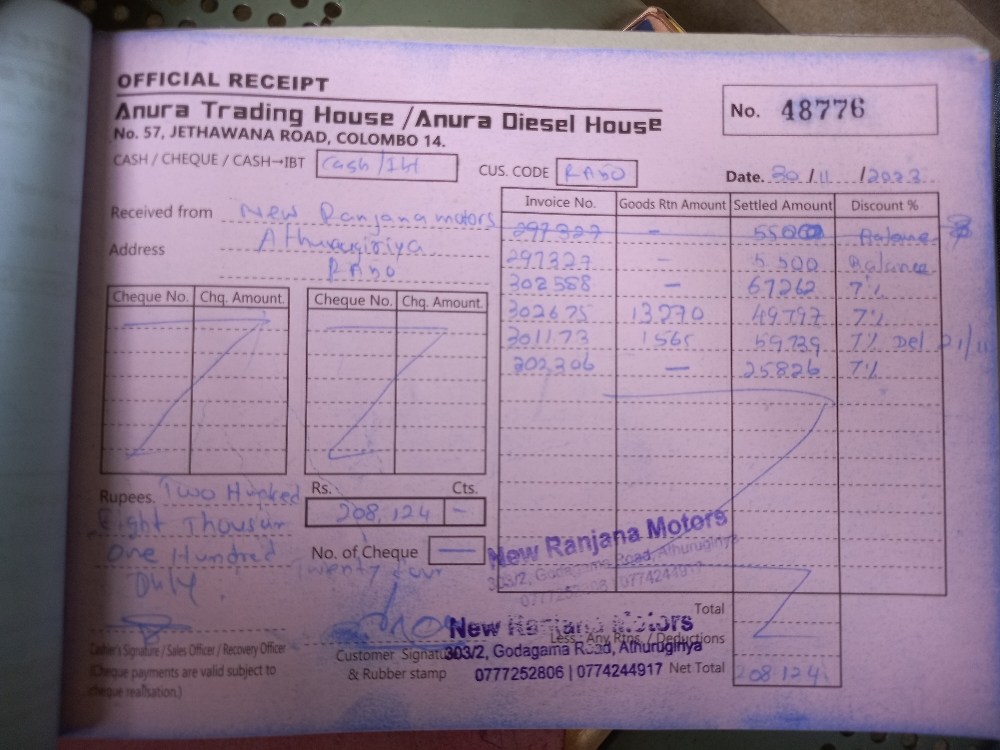 OFFICIAL RECEIPT
Anura Trading House /Anura Diesel House
No. 57, JETHAWANA ROAD, COLOMBO 14.
No. 48776
CASH / CHEQUE / CASH→IBT Cash /Ibt
CUS. CODE RA50
Date. 30 /11 /2023
Received from New Ranjana motors
Address Athurugiriya
RA50
Invoice No. Goods Rtn Amount Settled Amount Discount %
297327 - 5500 Balance
297327 - 5500 Balance
302558 - 67262 7%
302675 13270 49797 7%
301173 1565 59739 7% Del 21/11
- 25826 7%
Cheque No. Chq. Amount. Cheque No. Chq. Amount.
Rupees. Two Hundred
Eight Thousan
One Hundred
Twenty four
Only.
Rs. Cts.
208,124 -
No. of Cheque —
New Ranjana Motors
303/2, Godagama Road, Athuruginya
0777252806 | 0774244917
Total
Less : Any Rtns. / Deductions
Net Total 208124
New Ranjana Motors
303/2, Godagama Road, Athuruginya
0777252806 | 0774244917
Cashier's Signature / Sales Officer / Recovery Officer
(Cheque payments are valid subject to
cheque realisation.)
Customer Signature
& Rubber stamp